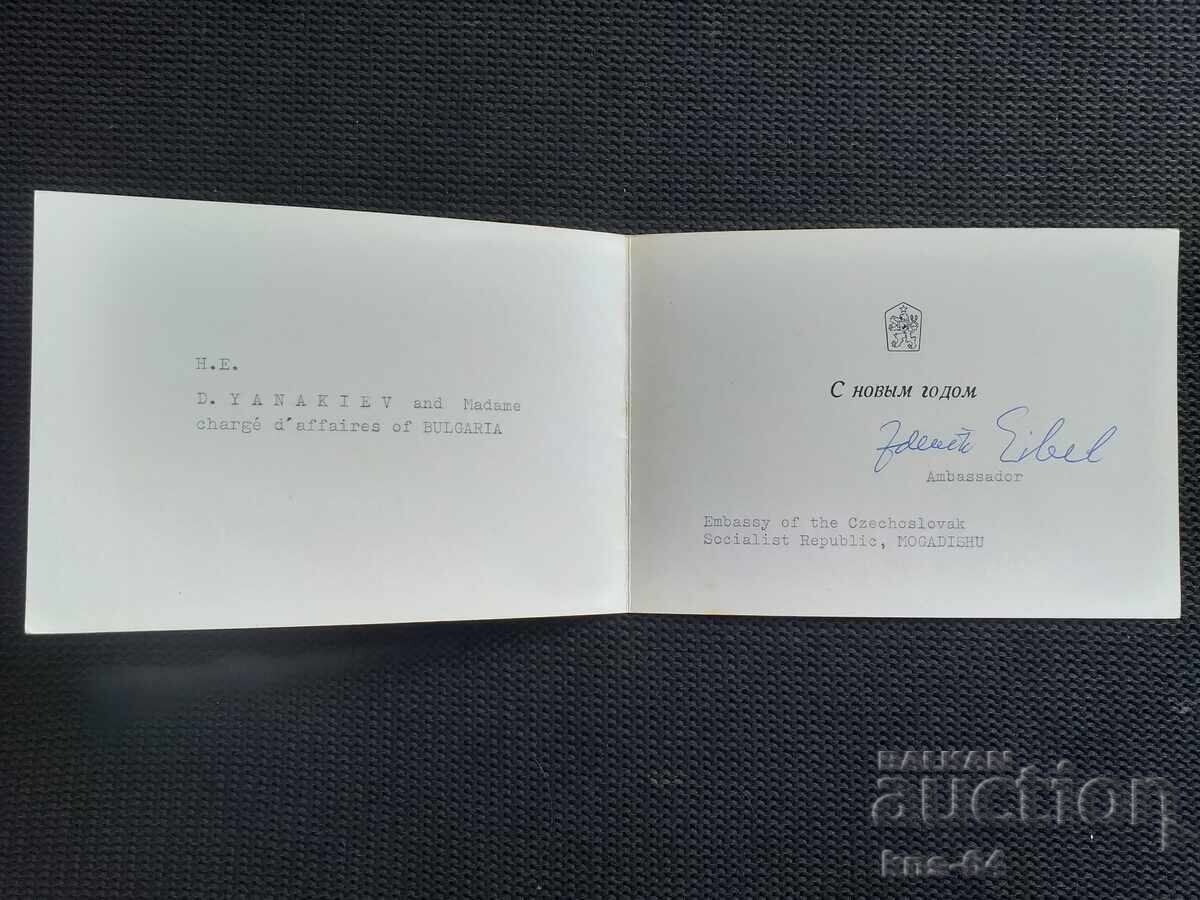 H.E.
D. YANAKIEV and Madame
chargé d'affaires of BULGARIA
С новым годом
Zdeněk Eibel
Ambassador
Embassy of the Czechoslovak
Socialist Republic, MOGADISHU
BALKAN
auction
kns-64